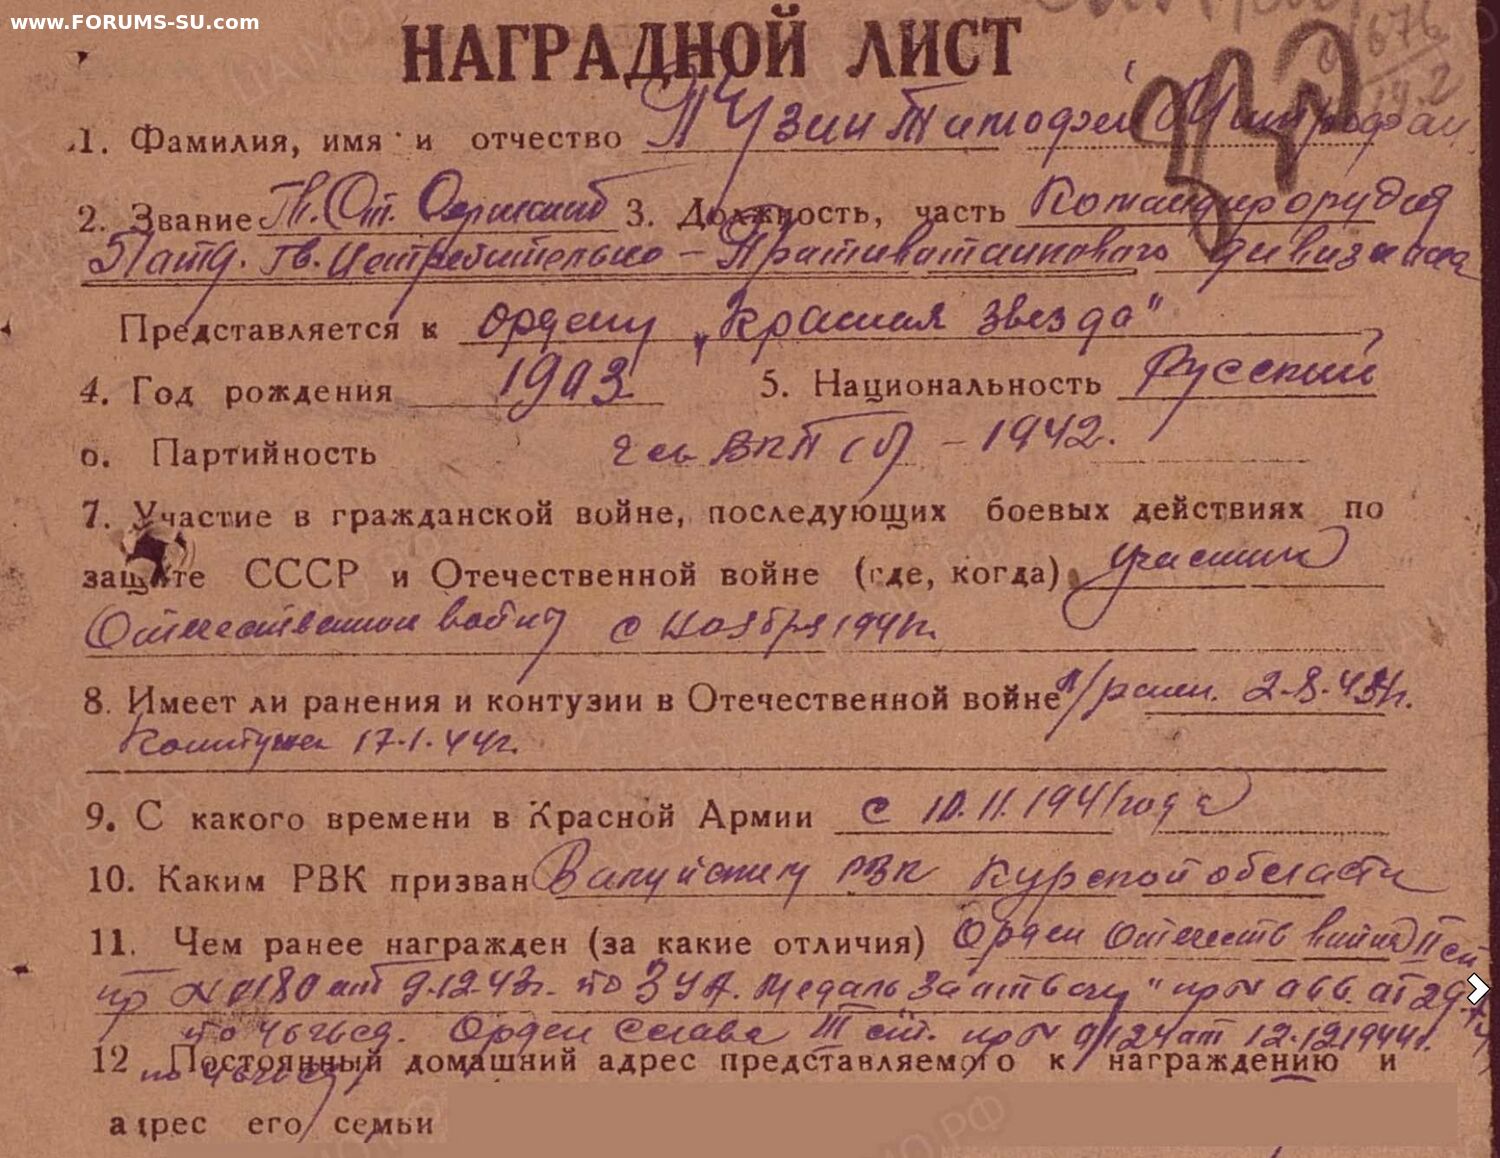 www.FORUMS-SU.com
НАГРАДНОЙ ЛИСТ
1. Фамилия, имя и отчество Пузин Тимофей Митрофан
2. Звание Гв. Ст. Сержант 3. Должность, часть Командир орудия
Гв. Истребительно - Противотанкового дивизиона
Представляется к ордену "Красная звезда"
4. Год рождения 1903 5. Национальность Русский
Партийность ВКП(б) - 1942.
7. Участие в гражданской войне, последующих боевых действиях по
защите СССР и Отечественной войне (где, когда) участник
Отечественной войны с ноября 1941г.
8. Имеет ли ранения и контузии в Отечественной войне л/ранен.
Контужен 17.1.44г.
9. С какого времени в Красной Армии с 10.11.1941 года
10. Каким РВК призван Валуйским РВК Курской области
11. Чем ранее награжден (за какие отличия) Орден Отечеств войны II ст
пр № 0180 от 9.12.43г. по 3 УА. Медаль За отвагу" пр №
Орден Слава III ст. пр № 0124 от 12.12.1944г.
12 Постоянный домашний адрес представляемого к награждению и
адрес его семьи